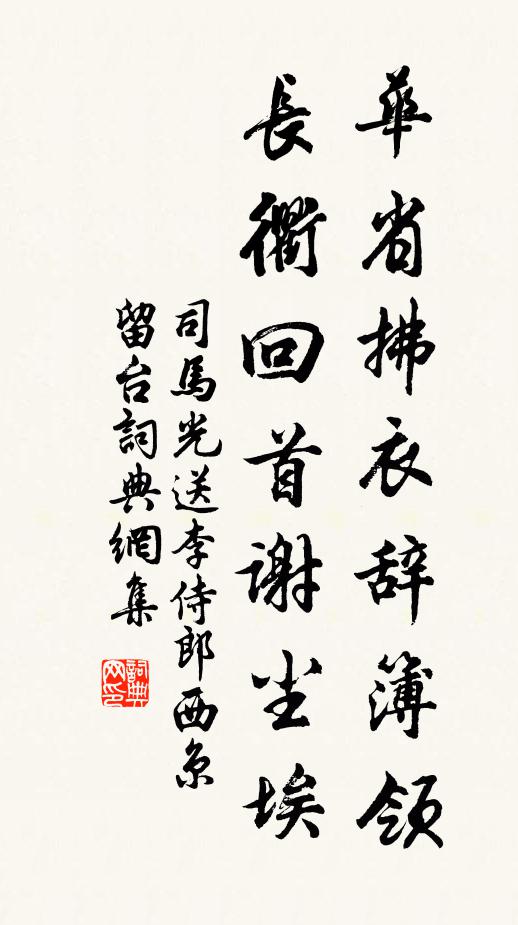 華省拂衣辞簿領
長衢回首謝尘埃
司馬光送李侍郎西京
留台詞典網集
詞典网印